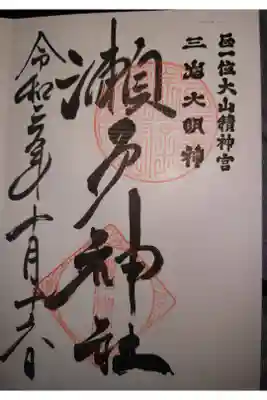 正一位大山積神宮
三島大明神
瀬戸神社
令和六年十月十六日